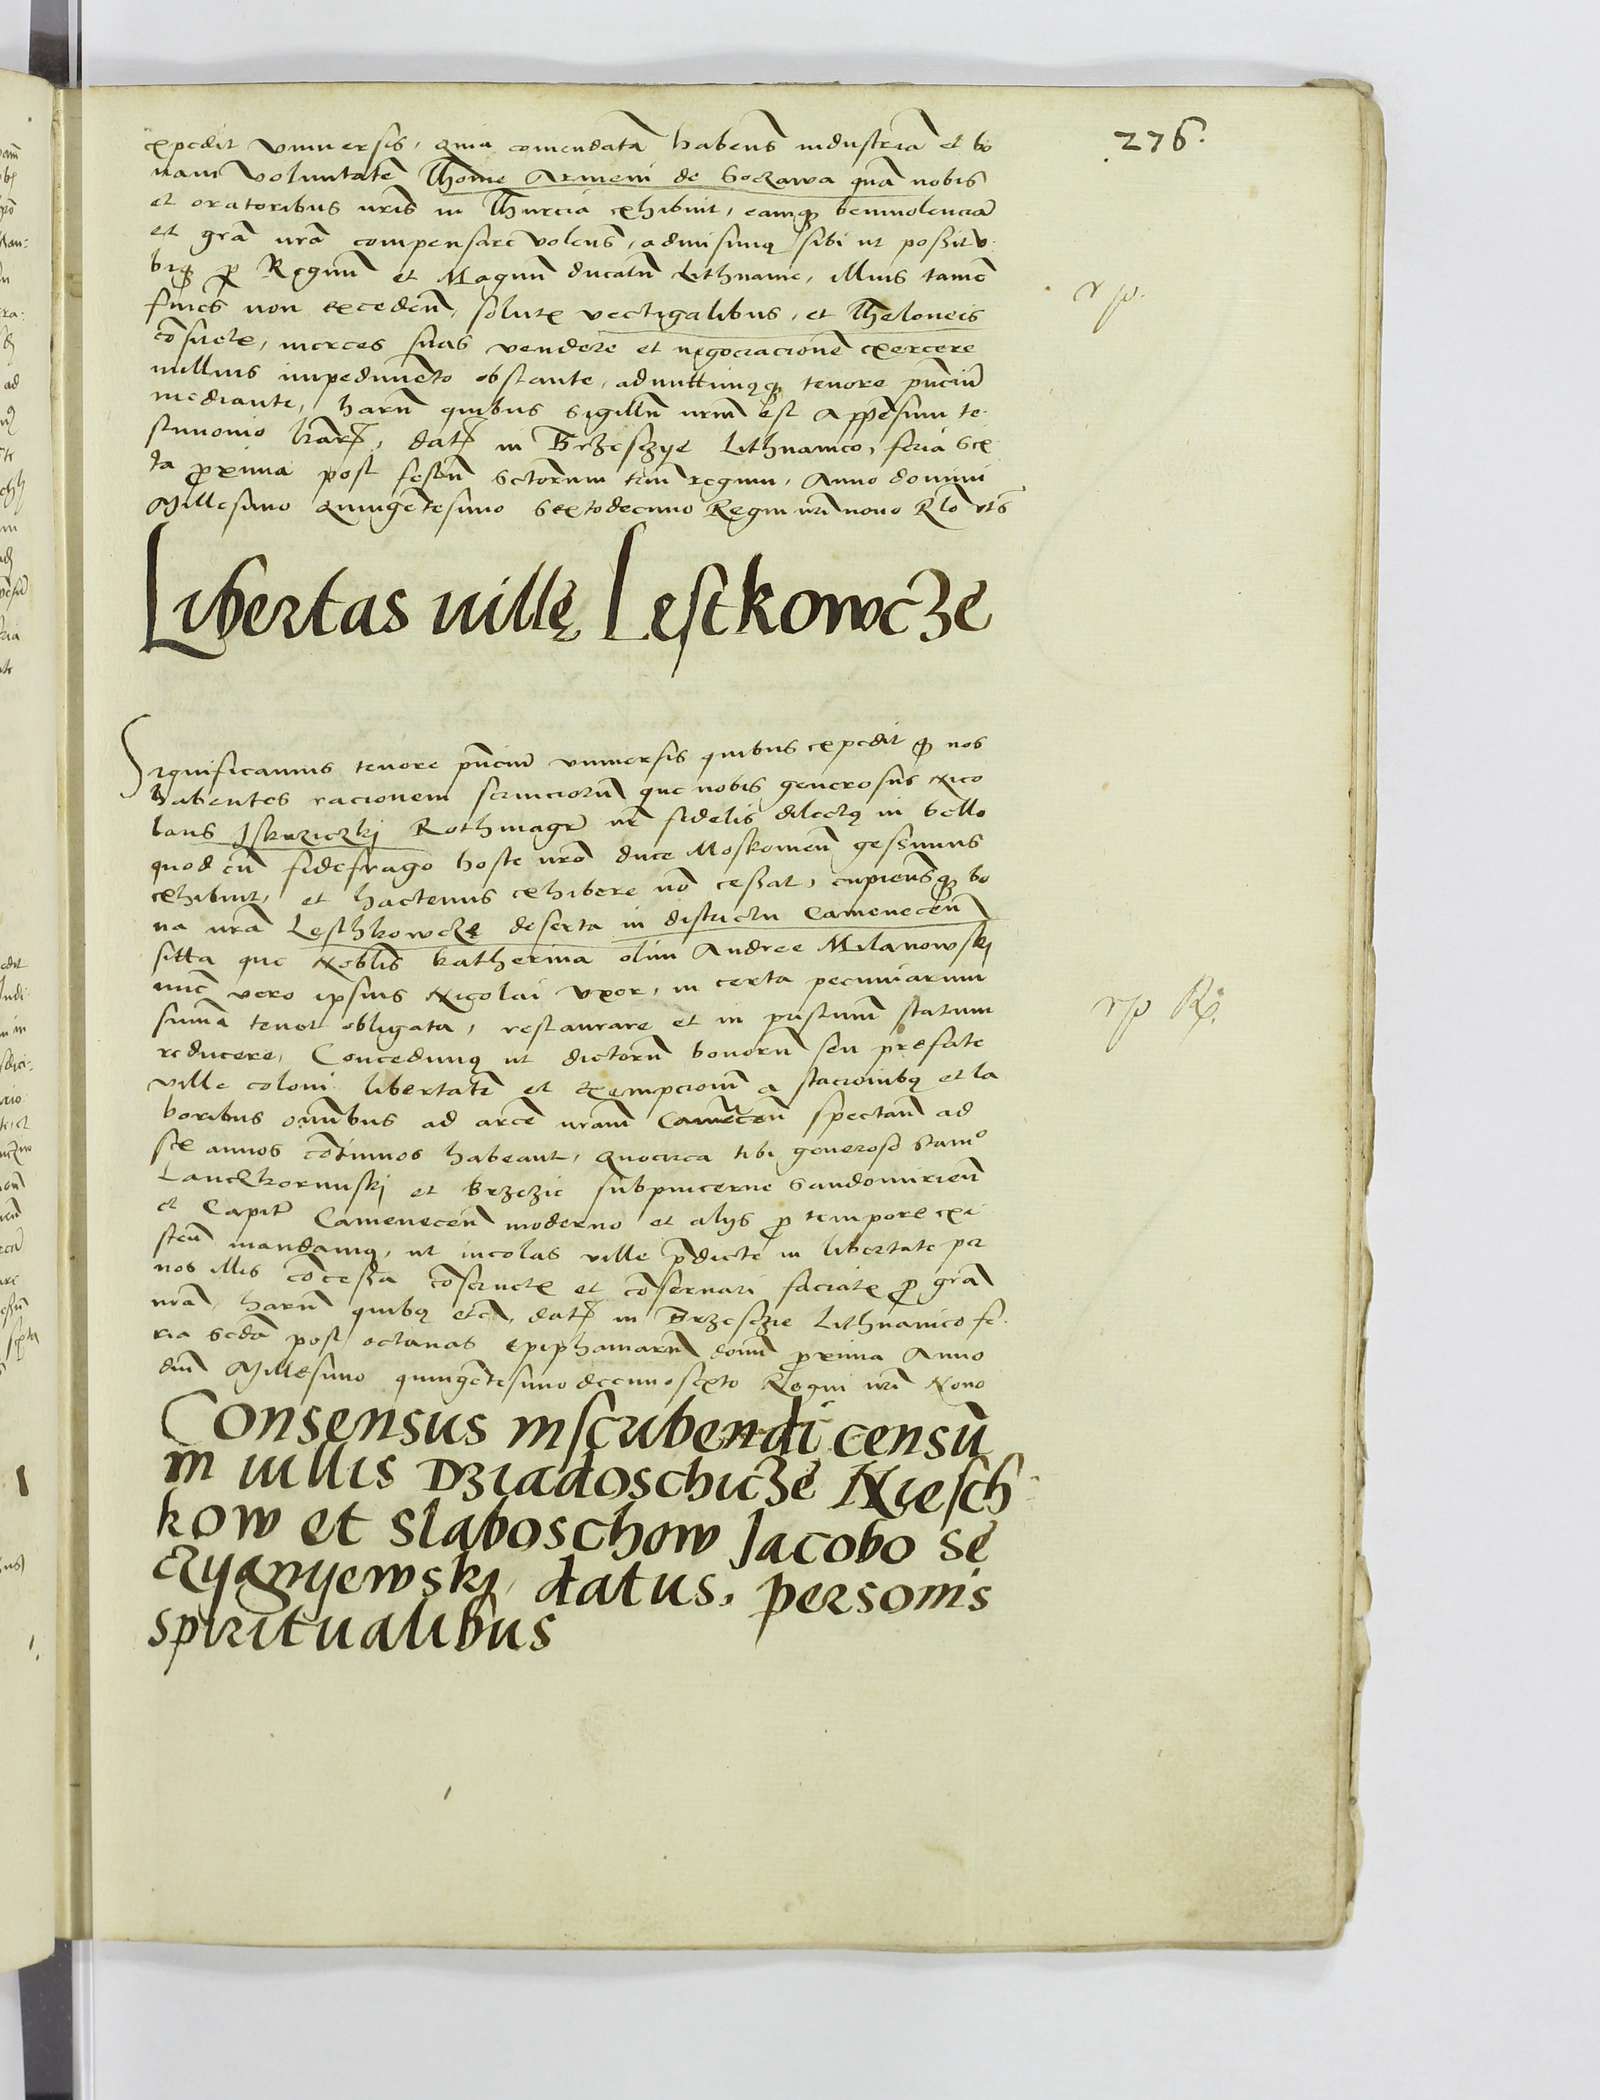 276.
expedit vniuersis, quia comendatã habens industriã et bo
nam voluntatẽ Thome Armeni de Soczawa quã nobis
et oratoribus nris in Thurcia exhibuit, eamq beniuolenciã
et grã nrã compensare volens, admisimq sibi ut possit v
biq p Regnũ et Magnũ ducatũ Lithuanie, illius tamẽ
fines non exceden, solutx vectigalibus, et Theloneis
cõsuetx, merces suas vendere et negociacionẽ exercere
nullius impedimẽto obstante, admittimqq tenore pnciũ
mediante, harũ quibus sigillũ nrm est appẽsum te
stimonio lrarꝝ, datꝝ in Brzesczye Lithuanico, feria sex
ta proxima post festũ sctorum trium regum, Anno domini
Millesimo Quingẽtesimo Sextodecimo Regni nri nono Rlo vts
Libertas uillę Lestkowcze
Significamus tenore pnciũ vniuersis quibus expedit q nos
habentes racionem seruiciorũ que nobis generosus Nico
laus Iskrziczkj Rothmagr nr fidelis dilectq in bello
quod cũ fidefrago hoste nro duce Moskouien gessimus
exhibuit, et hactenus exhibere nõ cessat, cupiensq bo
na nrã Leschkowczę deserta in districtu Camenecen
sitta que Noblis Katherina olim Andree Milanowskj
nũc vero ipsius Nicolai vxor, in certa pecuniarum
summa tenet obligata, restaurare et in pristinũ statum
reducere, Concedimq ut dictorũ bonorũ seu prefate
ville coloni libertatẽ et exempcionẽ a stacionibq et la
boribus oĩnibus ad arcẽ nram Camecen spectan ad
sex annos cõtinuos habeant, Quocirca tibi generoso Stanᵒ
Lanczkorunskj et Brzezie subpincerne Sandomirien
et Capit Camenecen moderno et alys p tempore exi
sten mandamq, ut incolas ville pdicte in libertate per
nos illis cõcessa cõseruetx et cõseruari faciatx p grã
nrã, harũ quibq etc, datꝝ in Brzesczie Lithuanico fe
ria scdã post octauas Epiphaniarũ domi proxima Anno
dni Millesimo quingẽtesimo decimosexto Regni nri Nono
Consensus inscribendi censũ
in uillis Dziadoschicze Niesch
kow et Slaboschow Jacobo Se
czygnyewskj, datus, personis
spiritualibus